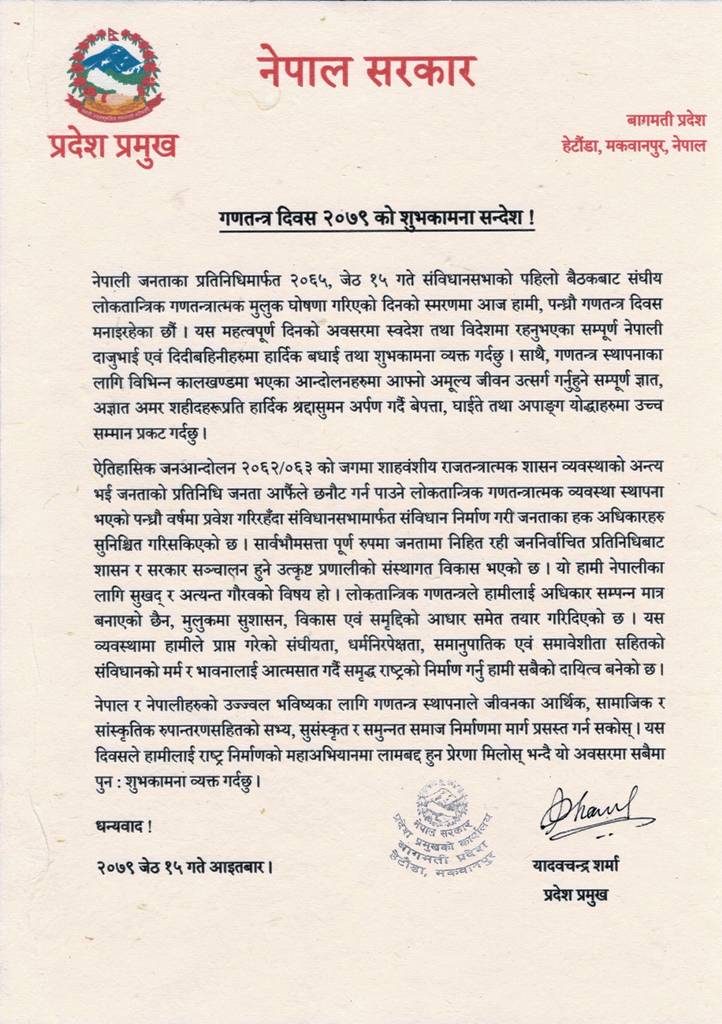 नेपाल सरकार
प्रदेश प्रमुख
बागमती प्रदेश
हेटौंडा, मकवानपुर, नेपाल
गणतन्त्र दिवस २०७९ को शुभकामना सन्देश !
नेपाली जनताका प्रतिनिधिमार्फत २०६५, जेठ १५ गते संविधानसभाको पहिलो बैठकबाट संघीय
लोकतान्त्रिक गणतन्त्रात्मक मुलुक घोषणा गरिएको दिनको स्मरणमा आज हामी, पन्ध्रौ गणतन्त्र दिवस
मनाइरहेका छौं । यस महत्वपूर्ण दिनको अवसरमा स्वदेश तथा विदेशमा रहनुभएका सम्पूर्ण नेपाली
दाजुभाई एवं दिदीबहिनीहरुमा हार्दिक बधाई तथा शुभकामना व्यक्त गर्दछु । साथै, गणतन्त्र स्थापनाका
लागि विभिन्न कालखण्डमा भएका आन्दोलनहरुमा आफ्नो अमूल्य जीवन उत्सर्ग गर्नुहुने सम्पूर्ण ज्ञात,
अज्ञात अमर शहीदहरूप्रति हार्दिक श्रद्दासुमन अर्पण गर्दै बेपत्ता, घाईते तथा अपाङ्ग योद्धाहरुमा उच्च
सम्मान प्रकट गर्दछु ।
ऐतिहासिक जनआन्दोलन २०६२/०६३ को जगमा शाहवंशीय राजतन्त्रात्मक शासन व्यवस्थाको अन्त्य
भई जनताको प्रतिनिधि जनता आफैंले छनौट गर्न पाउने लोकतान्त्रिक गणतन्त्रात्मक व्यवस्था स्थापना
भएको पन्ध्रौ वर्षमा प्रवेश गरिरहँदा संविधानसभामार्फत संविधान निर्माण गरी जनताका हक अधिकारहरु
सुनिश्चित गरिसकिएको छ । सार्वभौमसत्ता पूर्ण रुपमा जनतामा निहित रही जननिर्वाचित प्रतिनिधिबाट
शासन र सरकार सञ्चालन हुने उत्कृष्ट प्रणालीको संस्थागत विकास भएको छ । यो हामी नेपालीका
लागि सुखद् र अत्यन्त गौरवको विषय हो । लोकतान्त्रिक गणतन्त्रले हामीलाई अधिकार सम्पन्न मात्र
बनाएको छैन, मुलुकमा सुशासन, विकास एवं समृद्दिको आधार समेत तयार गरिदिएको छ । यस
व्यवस्थामा हामीले प्राप्त गरेको संघीयता, धर्मनिरपेक्षता, समानुपातिक एवं समावेशीता सहितको
संविधानको मर्म र भावनालाई आत्मसात गर्दै समृद्ध राष्ट्रको निर्माण गर्नु हामी सबैको दायित्व बनेको छ ।
नेपाल र नेपालीहरुको उज्ज्वल भविष्यका लागि गणतन्त्र स्थापनाले जीवनका आर्थिक, सामाजिक र
सांस्कृतिक रुपान्तरणसहितको सभ्य, सुसंस्कृत र समुन्नत समाज निर्माणमा मार्ग प्रसस्त गर्न सकोस् । यस
दिवसले हामीलाई राष्ट्र निर्माणको महाअभियानमा लामबद्द हुन प्रेरणा मिलोस् भन्दै यो अवसरमा सबैमा
पुन : शुभकामना व्यक्त गर्दछु ।
धन्यवाद !
नेपाल सरकार
प्रदेश प्रमुखको कार्यालय
बागमती प्रदेश
हेटौंडा, मकवानपुर
२०७९ जेठ १५ गते आइतबार ।
यादवचन्द्र शर्मा
प्रदेश प्रमुख